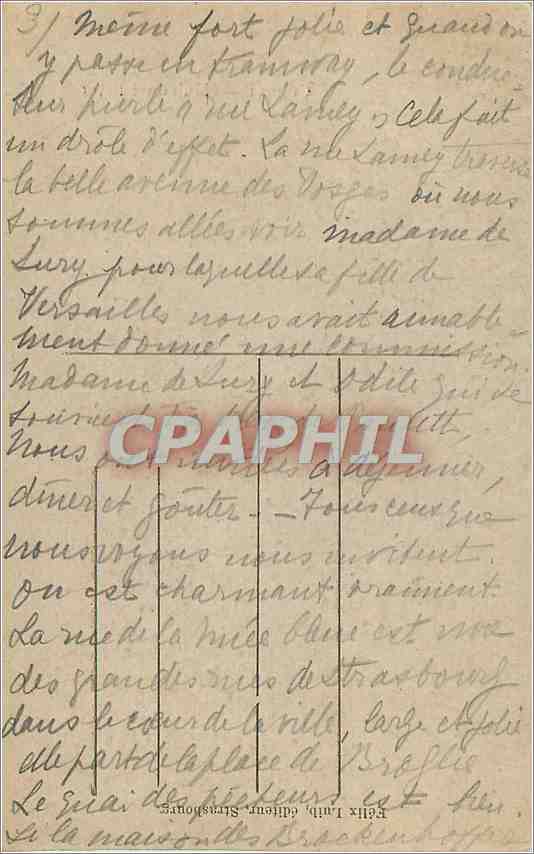 3/ Même fort jolie et quand on
y passe en tramway, le conduc-
teur hurle "rue Lamey" cela fait
un drôle d'effet. La rue Lamey traverse
la belle avenue des Vosges où nous
sommes allées voir madame de
Lury pour laquelle sa fille de
Versailles nous avait aimable-
ment donné une commission.
Madame de Lury et Odile qui se
CPAPHIL
Nous ont invitées à déjeuner,
dîner et goûter - - Tous ceux que
nous voyons nous invitent.
On est charmant vraiment.
La rue de la Nuée bleue est une
des grandes rues de Strasbourg
dans le cœur de la ville, large et jolie
elle part de la place de Broglie
Le quai des pêcheurs est bien
Félix Luib, éditeur, Strasbourg
si la maison des Brackenhoffer